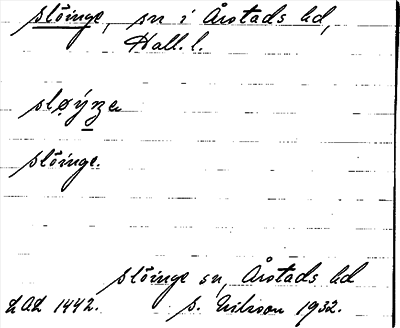 Slöinge, sn i Årstads hd,
Hall. l.
sløýŋe
Slöinge.
Slöinge sn, Årstads hd
LAL 1442. S. Nilsson 1932.